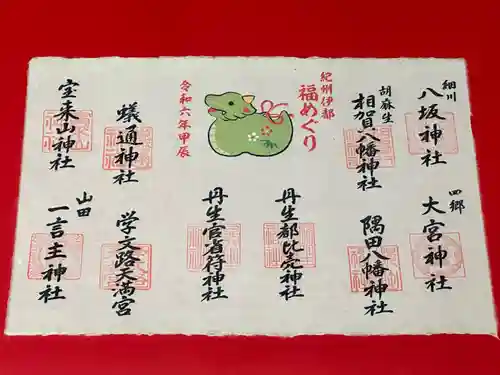 細川
八坂神社
胡麻生
相賀八幡神社
紀州伊都
福めぐり
令和六年甲辰
蟻通神社
宝来山神社
四郷
大宮神社
隅田八幡神社
丹生都比売神社
丹生官省符神社
学文路天満宮
山田
一言主神社